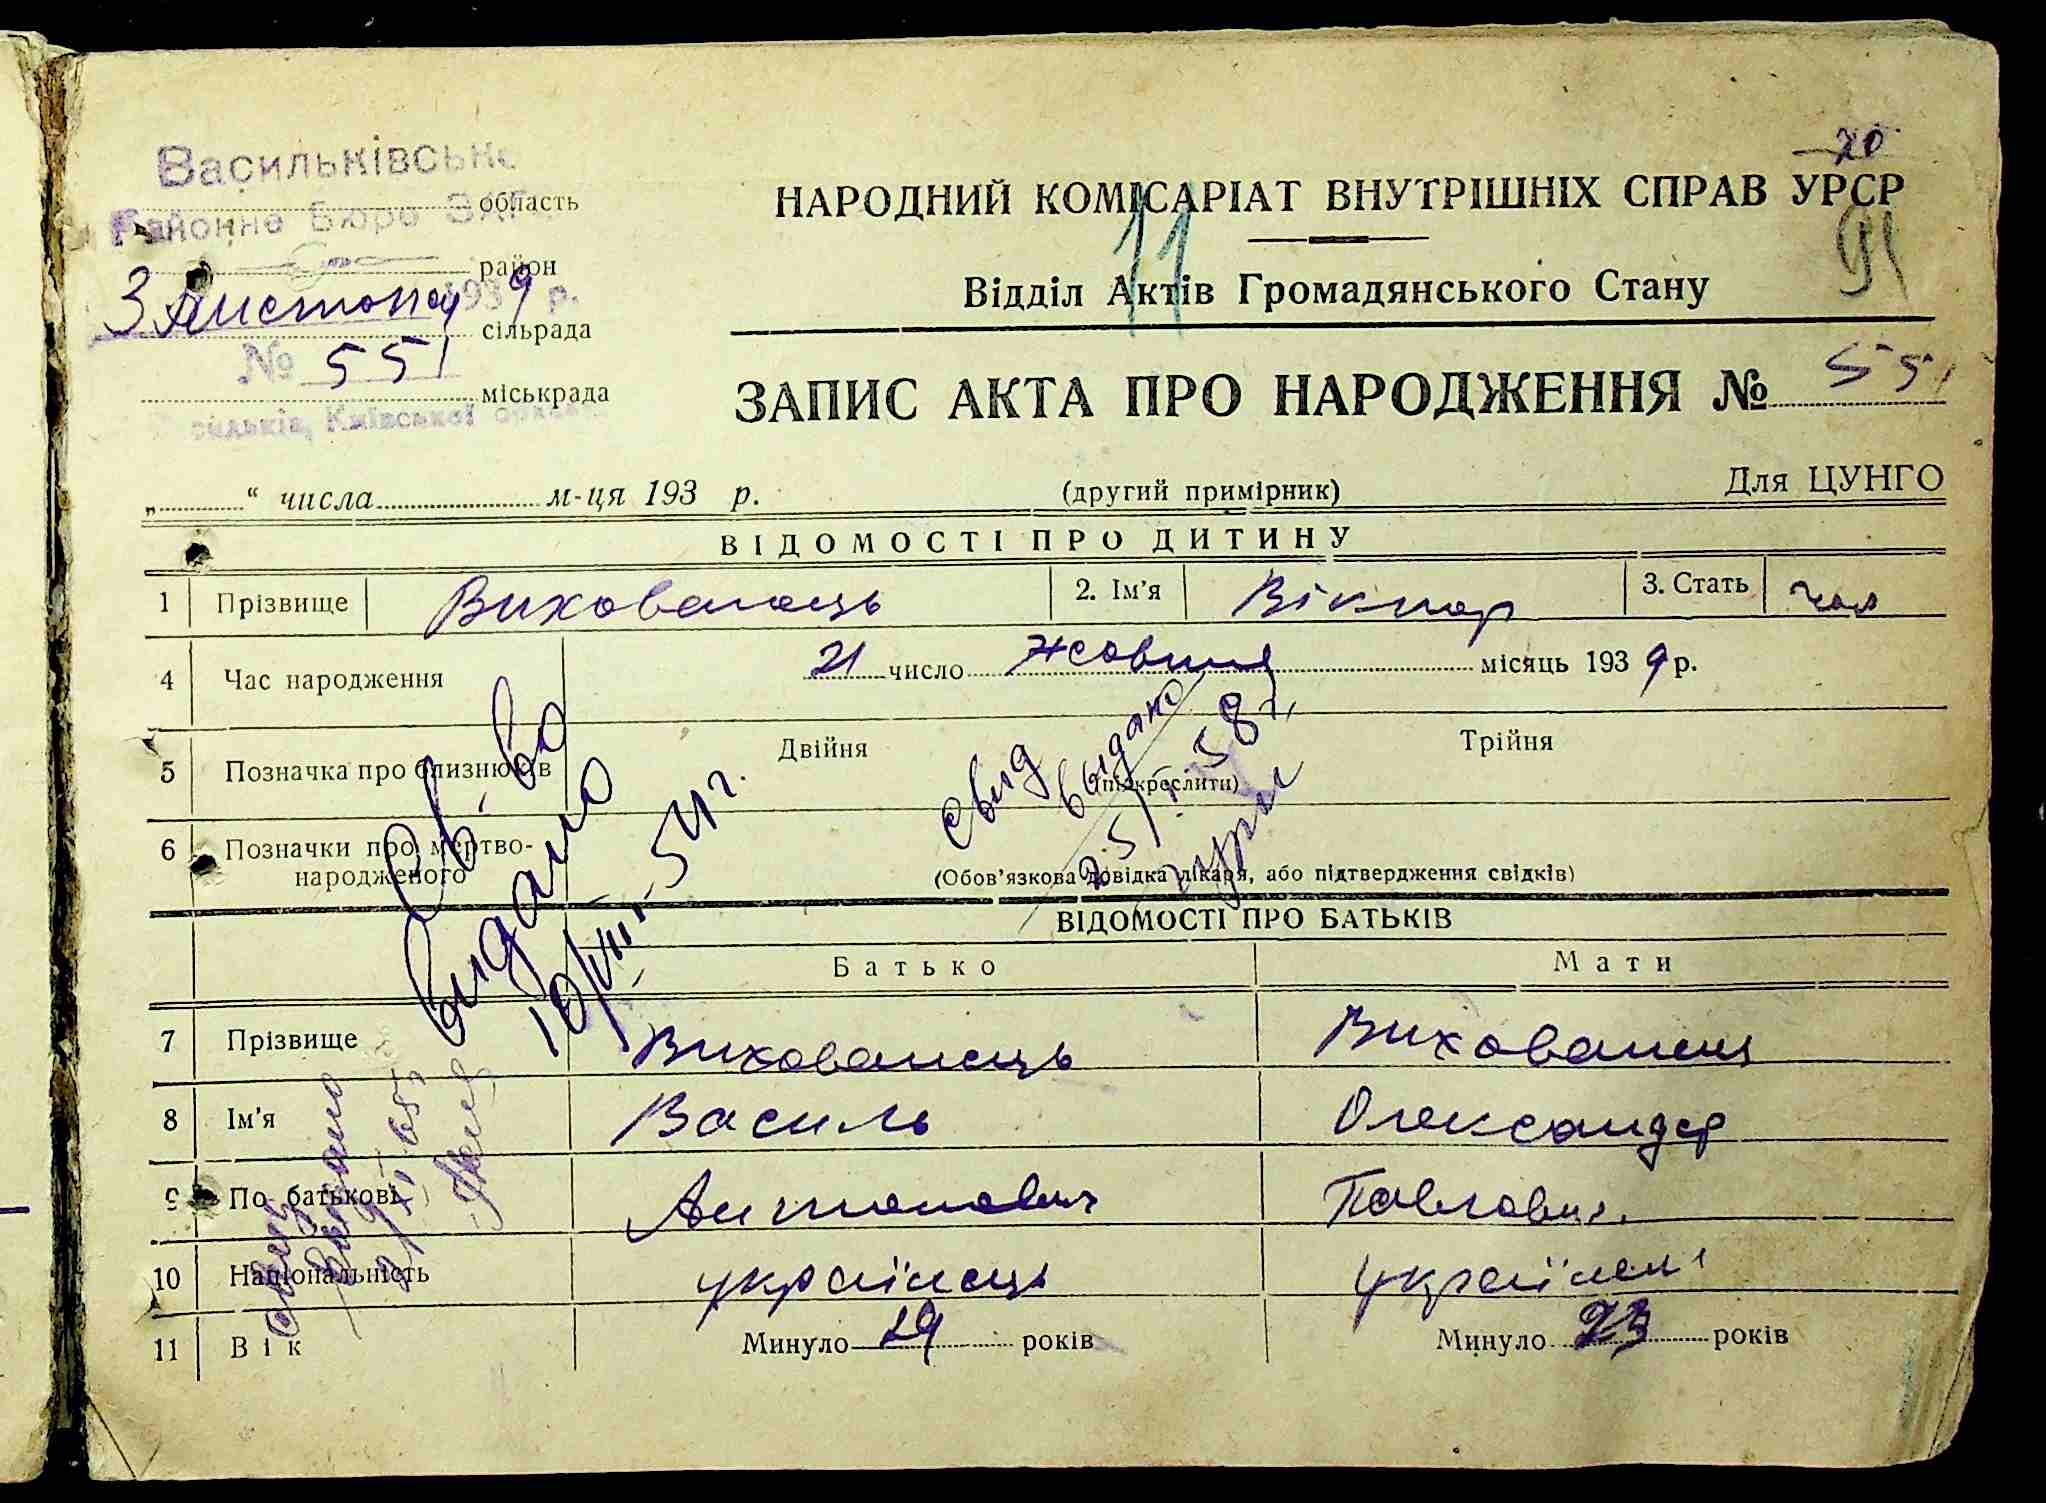 Васильківське
Районне Бюро ЗАГС
область
район
3 Листопад 1939 р.
сільрада
№ 551
міськрада
Васильків, Київської області
20
НАРОДНИЙ КОМІСАРІАТ ВНУТРІШНІХ СПРАВ УРСР
91
11
Відділ Актів Громадянського Стану
ЗАПИС АКТА ПРО НАРОДЖЕННЯ № 551
„ “ числа м-ця 193 р.
(другий примірник)
Для ЦУНГО
ВІДОМОСТІ ПРО ДИТИНУ
1 Прізвище Вихованець 2. Ім'я Віктор 3. Стать чол
4 Час народження 21 число Жовтня місяць 1939 р.
5 Позначка про близнюків Двійня Трійня
(підкреслити)
6 Позначки про мертво-
народженого
(Обов'язкова довідка лікаря, або підтвердження свідків)
Св-во
видано
10/VIII-54 г.
свид
выдано
58 г.
ВІДОМОСТІ ПРО БАТЬКІВ
Батько Мати
7 Прізвище Вихованець Вихованець
8 Ім'я Василь Олександр
9 По батькові Антонович Павловн.
10 Національність українець українк
11 Вік Минуло 29 років Минуло 23 років